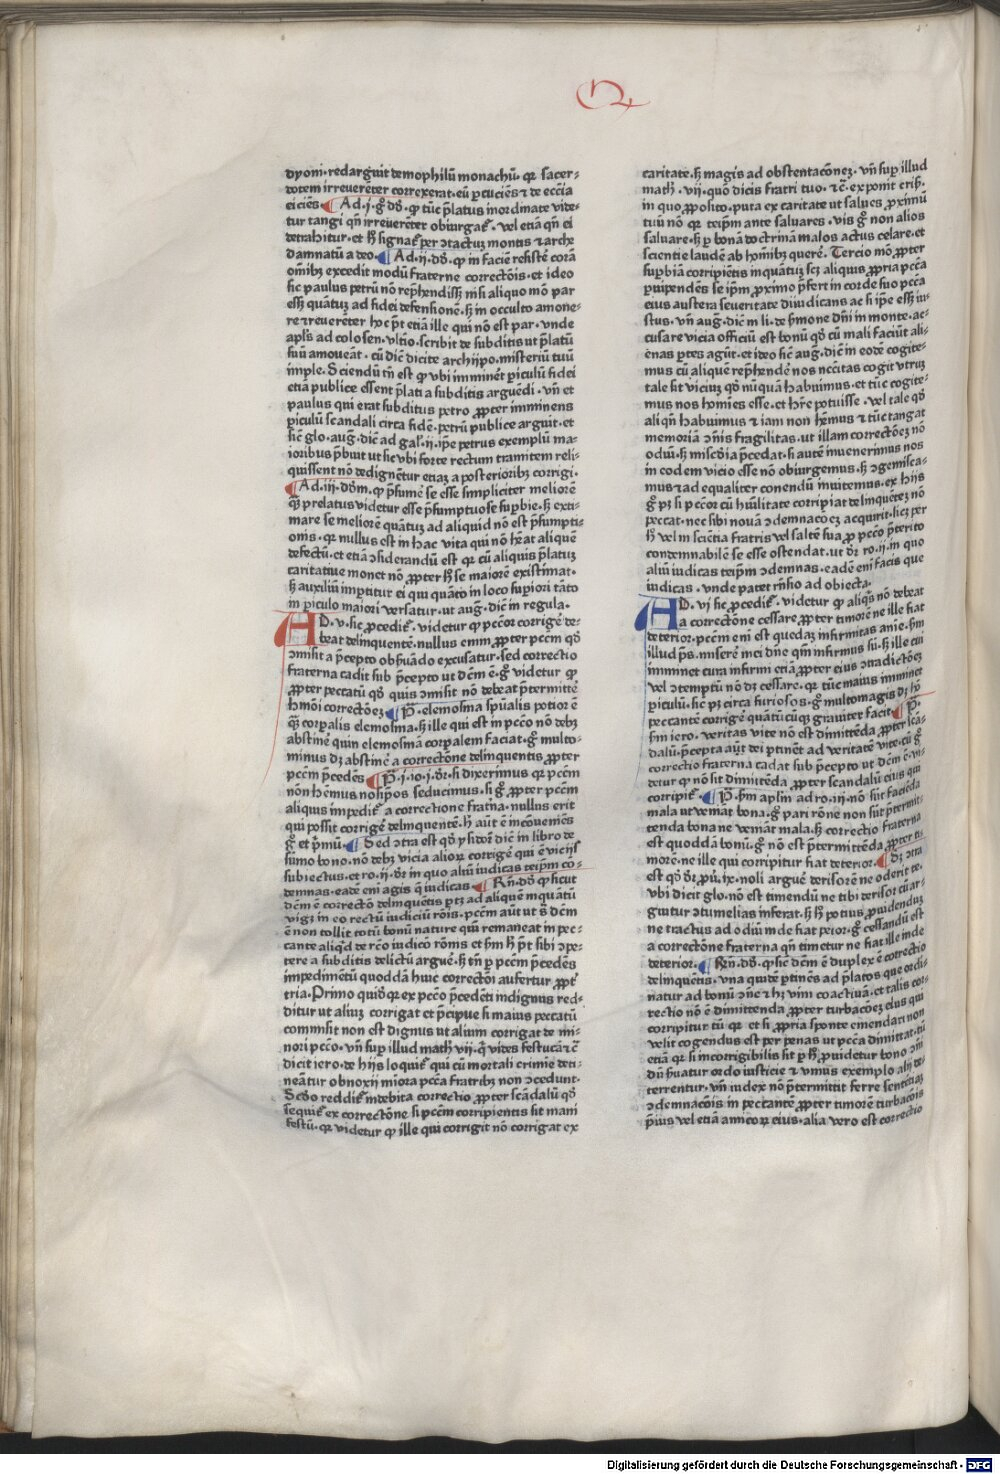 dyoni·redarguit demophilū monachū·qꝛ sacer⸗
dotem irreuerēter correxerat·eū ꝑcuciēs ⁊ de ecc̄ia
eiciēs Ad·j·gͦ dō·ꝙ tūc p̄latus inordinate vide⸗
tur tangi qn̄ irreuerēter obiurgat᷑·vel etiā qn̄ ei
detrahitur·et hͦ signat᷑ per ↄtactuꝫ montis ⁊ arche
damnatū a deo· Ad·ij·dō·ꝙ in faciē resistē corā
om̄ibꝫ excedit modū fraterne correctōis·et ideo
sic paulus petrū nō rep̄hendissꝫ nisi aliquo mō par
essꝫ quātuꝫ ad fidei defensionē·sꝫ in occulto amone⸗
re ⁊ reuerēter hoc pt̄ etiā ille qui nō est par·vnde
apl̄s ad colosen·vltīo·scribit de subditis ut p̄latū
suū amoueāt·cū dic̄ dicite archippo·misteriū tuū
imple·Sciendū tn̄ est ꝙ vbi imminēt ꝑiculū fidei
etiā publice essent p̄lati a subditis arguēdi·vn̄ et
paulus qui erat subditus petro ꝓpter imminens
ꝑiculū scandali circa fidē·petrū publice arguit·et
sic̄ glo·aug·dic̄ ad gal·ij·ip̄e petrus exemplū ma⸗
ioribus p̄buit ut sicvbi forte rectum tramitem reli⸗
quissent nō dedignētur etiaꝫ a posterioribꝫ corrigi·
Ad·iij·dōm·ꝙ p̄sumē se esse simpliciter meliorē
qꝫ prelatus videtur esse p̄sumptuose suꝑbie·sꝫ exti⸗
mare se meliorē quātuꝫ ad aliquid nō est p̄sumpti⸗
onis·qꝛ nullus est in hac vita qui nō hēat aliquē
defectū·et etiā ↄsiderandū est qꝛ cū aliquis p̄latuꝫ
caritatiue monet nō ꝓpter hͦ se maiorē existimat·
sꝫ auxiliū imꝑtitur ei qui quāto in loco suꝑiori tāto
in ꝑiculo maiori versatur·ut aug·dic̄ in regula·
AD·v·sic ꝓcedit᷑·videtur ꝙ pccōr corrigē de⸗
beat delinquentē·nullus enim ꝓpter pccm̄ qd̄
ↄmisit a p̄cepto obsuādo excusatur·sed correctio
fraterna cadit sub p̄cepto ut dc̄m ē·gͦ videtur ꝙ
ꝓpter peccatū qd̄ quis ↄmisit nō debeat p̄termittē
hꝰmōi correctōeꝫ P̄·elemosina sp̄ualis potior ē
qꝫ corꝑalis elemosina·sꝫ ille qui est in pccō nō debꝫ
abstinē quin elemosinā corꝑalem faciat·gͦ multo⸗
minus dꝫ abstinē a correctōne delinquentis ꝓpter
pccm̄ p̄cedēs P̄·j·io·j·dr̄·si dixerimus qꝛ pccm̄
non hēmus nosip̄os seducimus·si gͦ ꝓpter pccm̄
aliquis impedit᷑ a correctione frat̄na·nullus erit
qui possit corrigē delinquentē·hͦ aūt ē inↄueniēs
gͦ et p̄mū· Sed ↄtra est qd̄ ysidor dic̄ in libro de
sūmo bono·nō debꝫ vicia alioꝝ corrigē qui ē vicijs
subiectus·et ro·ij·dr̄ in quo aliū iudicas teip̄m cō⸗
demnas·eadē enī agis q̄ iudicas Rn̄·dō ꝙ sicut
dc̄m ē correctō delinquētis ꝑtꝫ ad aliquē inquātū
vigꝫ in eo rectū iudiciū rōis·pccm̄ aūt ut sͣ dc̄m
ē non tollit totū bonū nature qui remaneat in pec⸗
cante aliqd̄ de rc̄o iudicō rōnis et sm̄ hͦ pt̄ sibi ↄpe⸗
tere a subditis delictū arguē·sꝫ tn̄ ꝑ pccm̄ p̄cedēs
impedimētū quoddā huic correctōi aufertur ꝓpt̄
tria·Primo quidē qꝛ ex pccō p̄cedēti indignus red⸗
ditur ut aliuꝫ corrigat et p̄cipue si maius peccatū
commisit non est dignus ut alium corrigat de mi⸗
nori pccō·vn̄ suꝑ illud math̄ vij·qͥ vides festucā ⁊c̄
dicit iero·de hijs loquit᷑ qui cū mortali crimīe deti⸗
neātur obnoxij mīora pcca fratribꝫ non ↄcedunt·
Scd̄o reddit᷑ indebita correctio ꝓpter scādalū qd̄
sequit᷑ ex correctōne si pccm̄ corripientis sit mani
festū·qꝛ videtur ꝙ ille qui corrigit nō corrigat ex
caritate·sꝫ magis ad obstentacōneꝫ·vn̄ suꝑ illud
math̄·vij·quō dicis fratri tuo·⁊c̄·exponit cris·
in quo ꝓposito·puta ex caritate ut salues ꝓximū
tuū nō qꝛ teip̄m ante saluares·vis gͦ non alios
saluare·sꝫ ꝑ bonā doctrinā malos actus celare·et
scientie laudē ab hoībꝫ querē·Tercio mō ꝓpter
suꝑbiā corripiētis inquātuꝫ scꝫ aliquis ꝓpria pccā
ꝑuipendēs se ip̄m ꝓximo p̄fert in corde suo pccā
eius austera seueritate diiudicans ac si ip̄e essꝫ iu⸗
stus·vn̄ aug·dic̄ in li·de ẜmone dn̄i in monte·ac⸗
cusare vicia officiū est bonū qd̄ cū mali faciūt ali⸗
ēnas ꝑtes agūt·et ideo sic̄ aug·dic̄ in eodē cogite⸗
mus cū aliquē rep̄hendē nos nccītas cogit vtruꝫ
tale sit viciuꝫ qd̄ nūquā habuimus·et tūc cogite⸗
mus nos homīes esse·et hr̄e potuisse·vel tale qd̄
aliqn̄ habuimus ⁊ iam non hēmus ⁊ tūc tangat
memoriā ↄīs fragilitas·ut illam correctōeꝫ nō
odiū·sꝫ misc̄dia p̄cedat·si autē inuenerimus nos
in eodem vicio esse nō obiurgemus·sꝫ ↄgemisca⸗
mus ⁊ ad equaliter conendū inuitemus·ex hijs
gͦ pꝫ si pccōr cū hūilitate corripiat delinquētē nō
peccat·nec sibi nouā ↄdemnacōeꝫ acquirit·licꝫ per
hͦ vel in scientia fratris vel saltē sua ꝓ pccō p̄terito
condemnabilē se esse ostendat·ut dr̄ ro·ij·in quo
aliū iudicas teip̄m ↄdemnas·eadē enī facis que
iudicas·vnde patet rn̄sio ad obiecta·
AD·vj sic ꝓcedit᷑·videtur ꝙ aliqs̄ nō debeat
a correctōne cessare ꝓpter timorē ne ille fiat
deterior·pccm̄ enī est quedaꝫ infirmitas anīe·sm̄
illud ps̄·miserē mei dn̄e qm̄ infirmus sū·sꝫ ille cui
imminet cura infirmi etiā ꝓpter eius ↄtradictōeꝫ
vel ↄtemptū nō dꝫ cessare·qꝛ tūc maius imminet
ꝑiculū·sic̄ pꝫ circa furiosos·gͦ multomagis dꝫ hō
peccantē corrigē quātūcūqꝫ grauiter facit P̄·
sm̄ iero·veritas vite nō est dimittēda ꝓpter scā⸗
dalū·p̄cepta aūt dei ꝑtinēt ad veritatē vite·cū gͦ
correctio fraterna cadat sub p̄cepto ut dc̄m ē vi⸗
detur ꝙ nō sit dimittēda ꝓpter scandalū eius qui
corripit᷑· P̄·sm̄ apl̄m ad ro·iij·nō sūt faciēda
mala ut veniāt bona·gͦ pari rōne non sūt p̄termit⸗
tenda bona ne veniāt mala·sꝫ correctio fraterna
est quoddā bonū·gͦ nō est p̄termittēda ꝓpter ti⸗
morē·ne ille qui corripitur fiat deterior· Sꝫ ↄtra
est qd̄ dr̄ pu·ix·noli arguē derisorē ne oderit te·
vbi dicit glo·nō est timendū ne tibi derisor cū ar⸗
guitur ↄtumelias inferat·sꝫ hͦ potius ꝓuidenduꝫ
ne tractus ad odiū inde fiat peior·gͦ cessandū est
a correctōne fraterna qn̄ timetur ne fiat ille inde
deterior· Rn̄·dō·ꝙ sic̄ dc̄m ē duplex ē correctio
delinquētis·vna quidē ꝑtinēs ad p̄latos que ordi⸗
natur ad bonū ↄne ⁊ hꝫ vim coactiuā·et talis cor⸗
rectio nō ē dimittenda ꝓpter turbacōeꝫ eius qui
corripitur tū qꝛ et si ꝓpria sponte emendari non
velit cogendus est per penas ut pccā dimittat·tū
etiā qꝛ si incorrigibilis sit ꝑ hͦ ꝓuidetur bono ↄī
dū ẜuatur ordo iusticie ⁊ vnius exemplo alij de⸗
terrentur·vn̄ iudex nō p̄termittit ferre sentētiaꝫ
ↄdemnacōis in peccantē ꝓpter timorē turbacōis
ip̄ius vel etiā amicoꝝ eius·alia vero est correctio
Digitalisierung gefördert durch die Deutsche Forschungsgemeinschaft - DFG